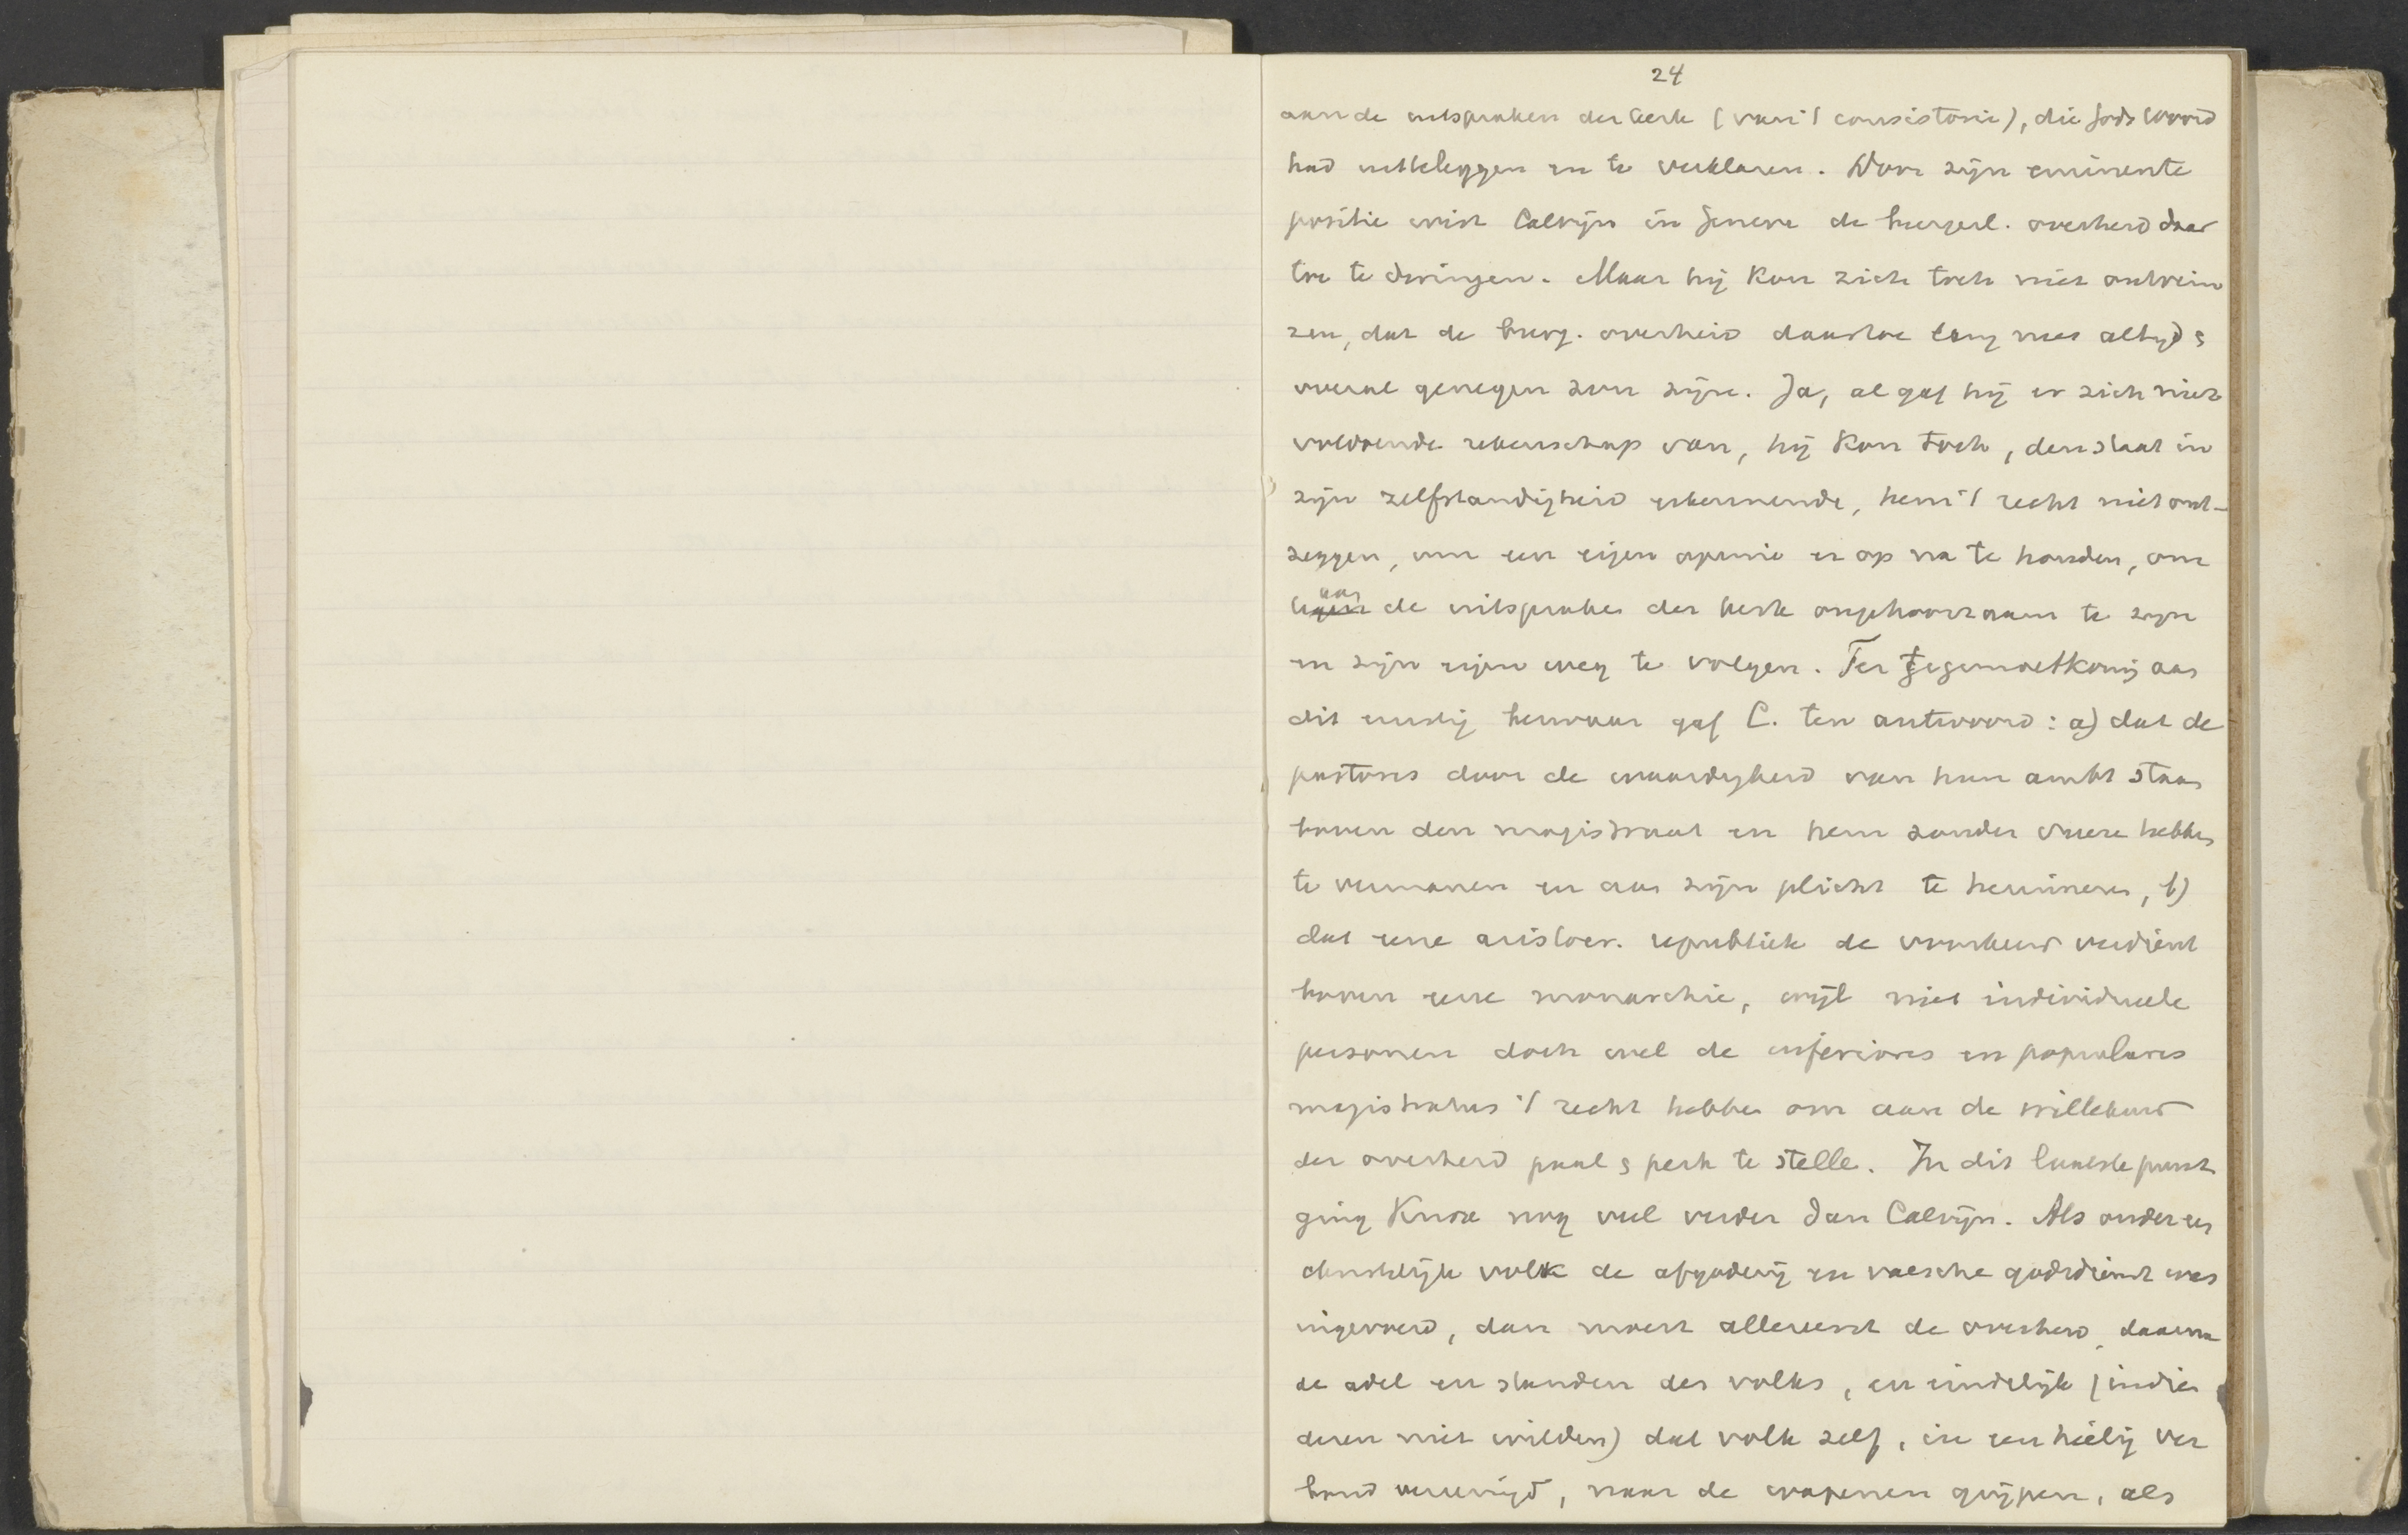 24
aan de uitspraken der kerk (van 't consistorie), die Gods Woord
had uitteleggen en te verklaren. Door zijn eminente
positie wist Calvijn in Geneve de burgerl. overheid daar
toe te dwingen. Maar hij kon zich toch niet ontvein
zen, dat de burg. overheid daartoe lang niet altijd &
overal genegen zou zijn. Ja, al gaf hij er zich niet
voldoende rekenschap van, hij kon toch, den staat in
zijn zelfstandigheid erkennende, hem 't recht niet ont-
zeggen, om een eigen opinie er op na te houden, om
aan de uitspraken der kerk ongehoorzaam te zijn
en zijn eigen weg te volgen. Ter tegemoetkoming aan
dit ernstig bezwaar gaf C. ten antwoord: a) dat de
pastores door de waardigheid van hun ambt staan
boven den magistraat en hem zonder vreeze hebben
te vermanen en aan zijn plicht te herinneren, b)
dat eene aristocr. republiek de voorkeur verdient
boven eene monarchie, wijl niet individueele
personen doch wel de inferiores en populares
magistratus 't recht hebben om aan de willekeur
der overheid paal & perk te stelle. In dit laatste punt
ging Knox nog veel verder dan Calvijn. Als onder een
christelijk volk de afgoderij en valsche godsdienst was
ingevoerd, dan moest allereerst de overheid, daarna
de adel en standen des volks, en eindelijk (indien
dezen niet wilden) dat volk zelf, in een heilig ver
bond vereenigd, naar de wapenen grijpen, als